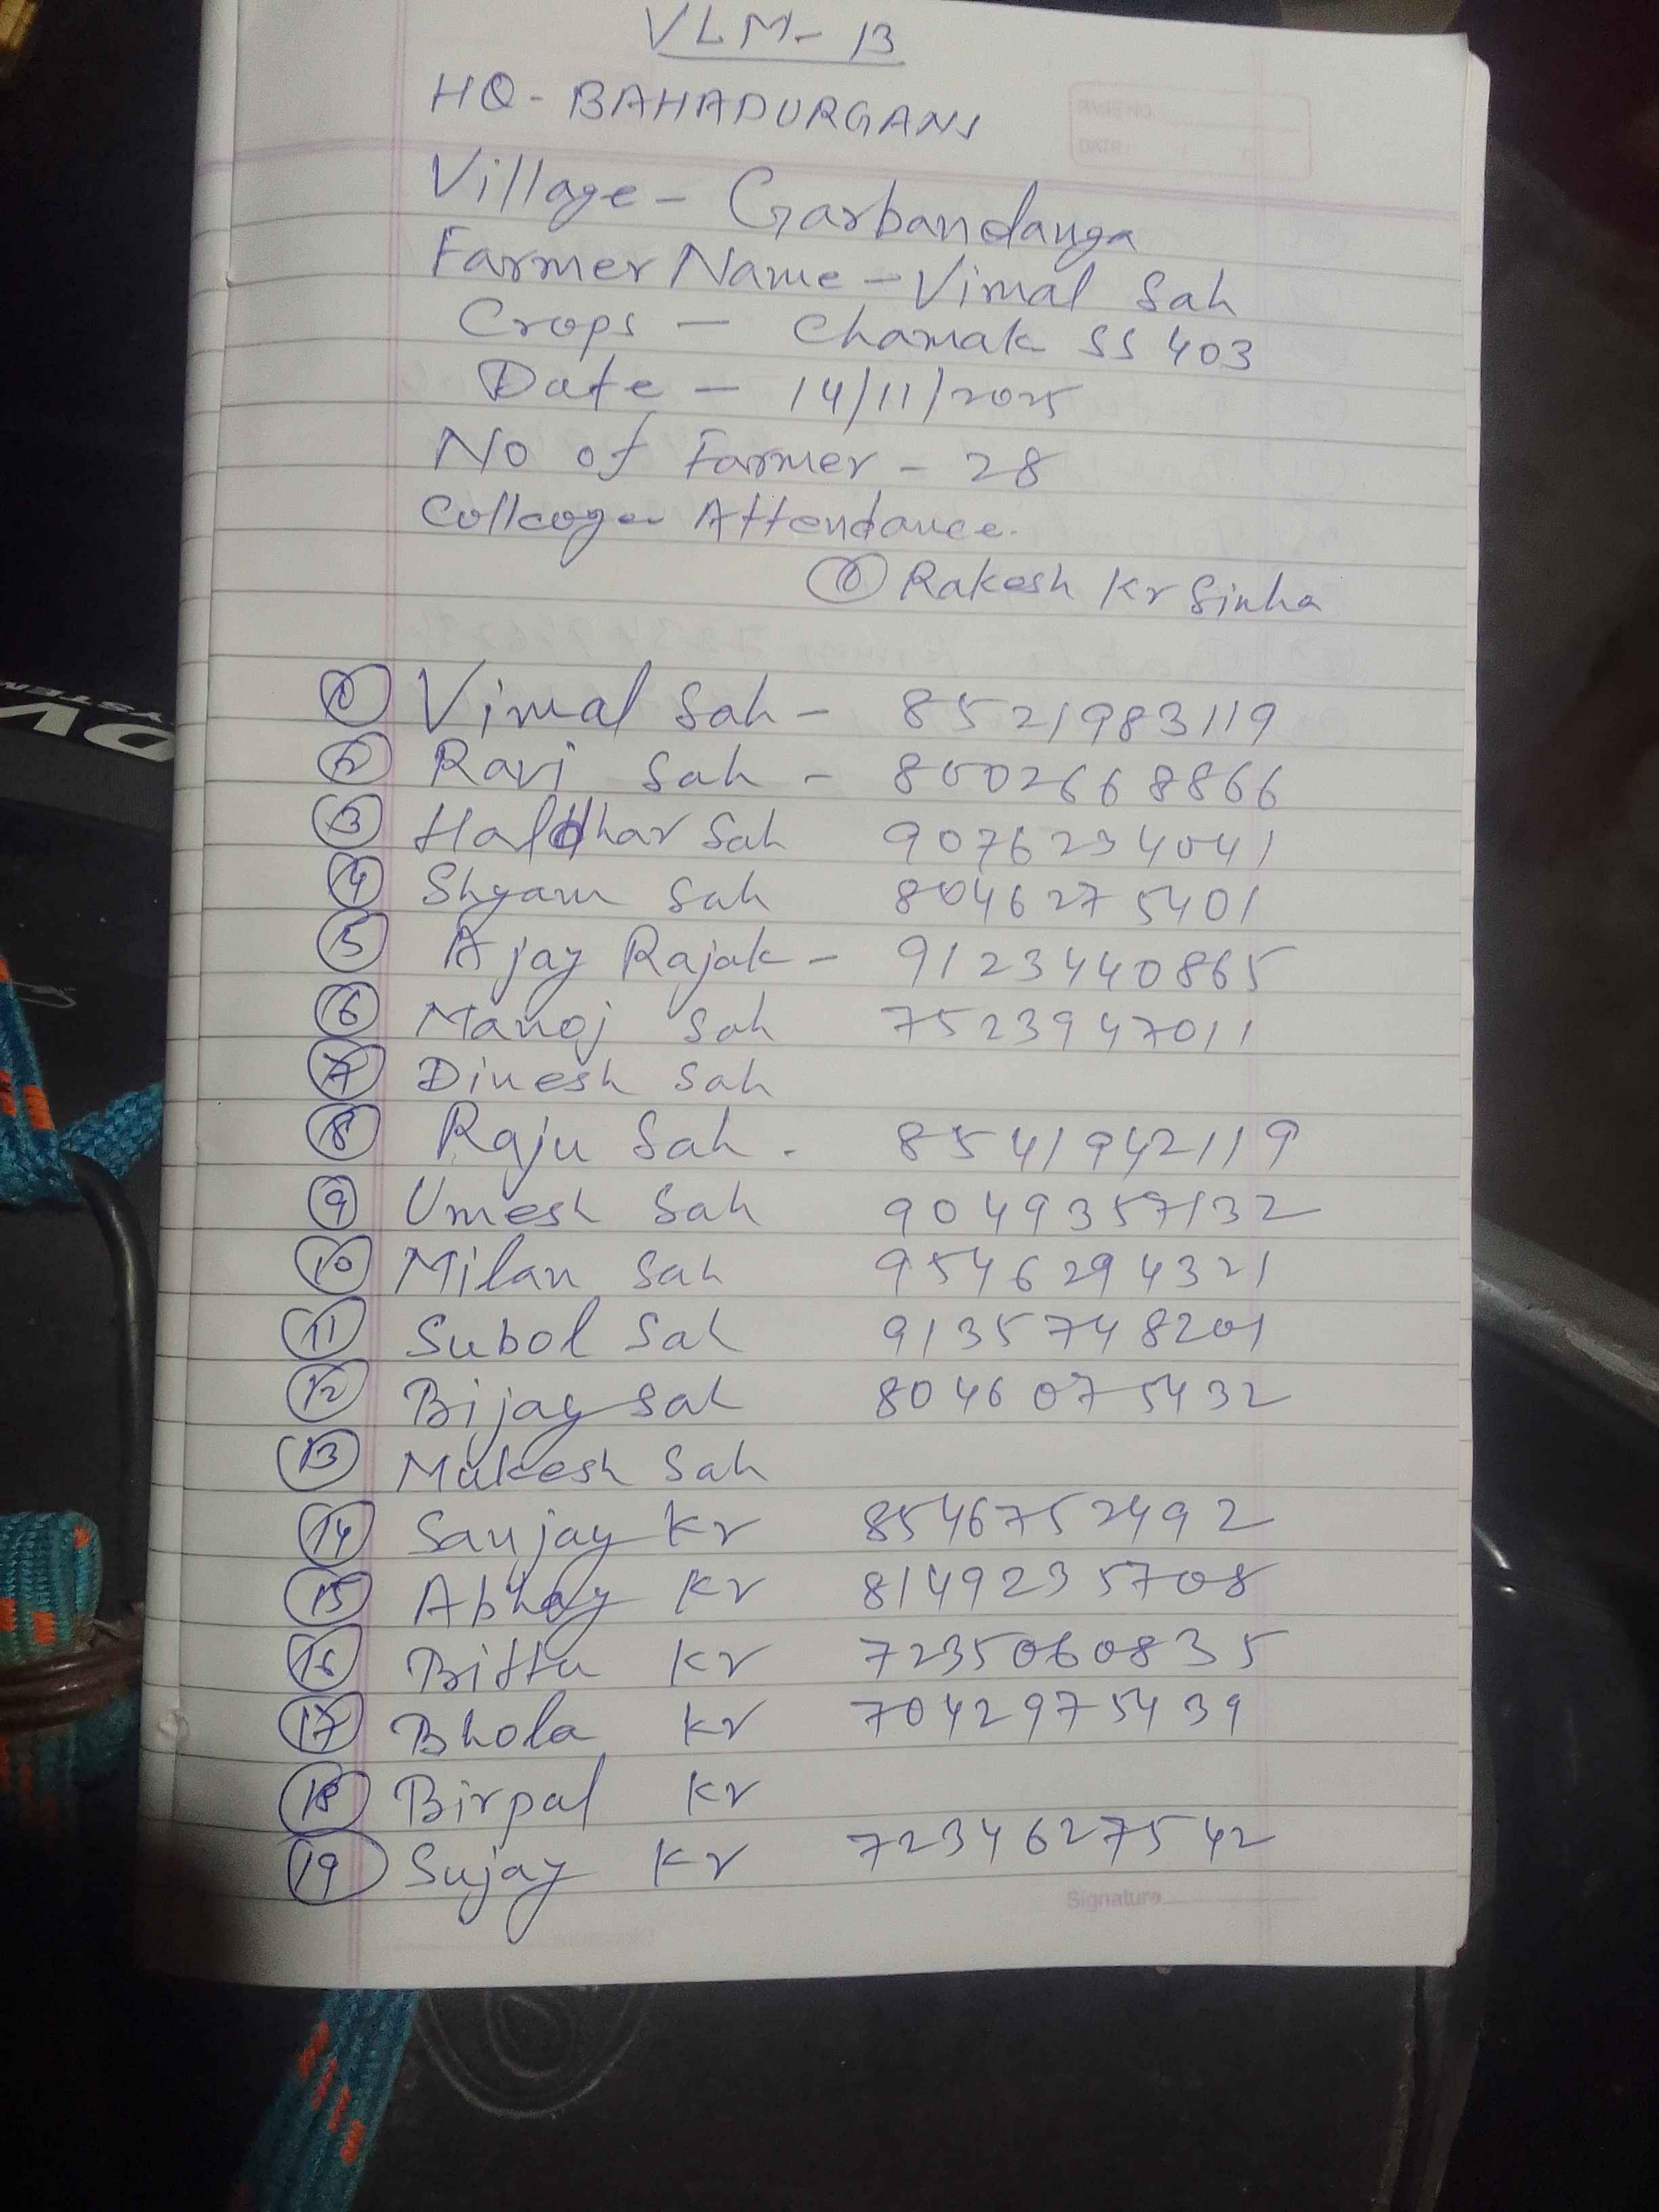 VLM- 13
HQ- BAHADURGANJ
Village- Garbandanga
Farmer Name - Vimal Sah
Crops - Chamak SS 403
Date - 14/11/2025
No of Farmer - 28
Attendance.
① Rakesh Kr Sinha
① Vimal Sah - 8521983119
② Ravi Sah - 8002668866
③ Haldhar Sah 9076234041
④ Shyam Sah 8046275401
⑤ Ajay Rajak - 9123440865
⑥ Manoj Sah 7523947011
⑦ Dinesh Sah
⑧ Raju Sah. 8541942119
⑨ Umesh Sah 9049357132
⑩ Milan Sah 9546294321
⑪ Subol Sah 9135748201
⑫ Bijay Sah 8046075432
⑬ Mukesh Sah
⑭ Sanjay Kr 8546752492
⑮ Abhay Kr 8149235708
⑯ Bittu Kr 7235060835
⑰ Bhola Kr 7042975439
⑱ Birpal Kr
⑲ Sujay Kr 7234627542
Signature
DV